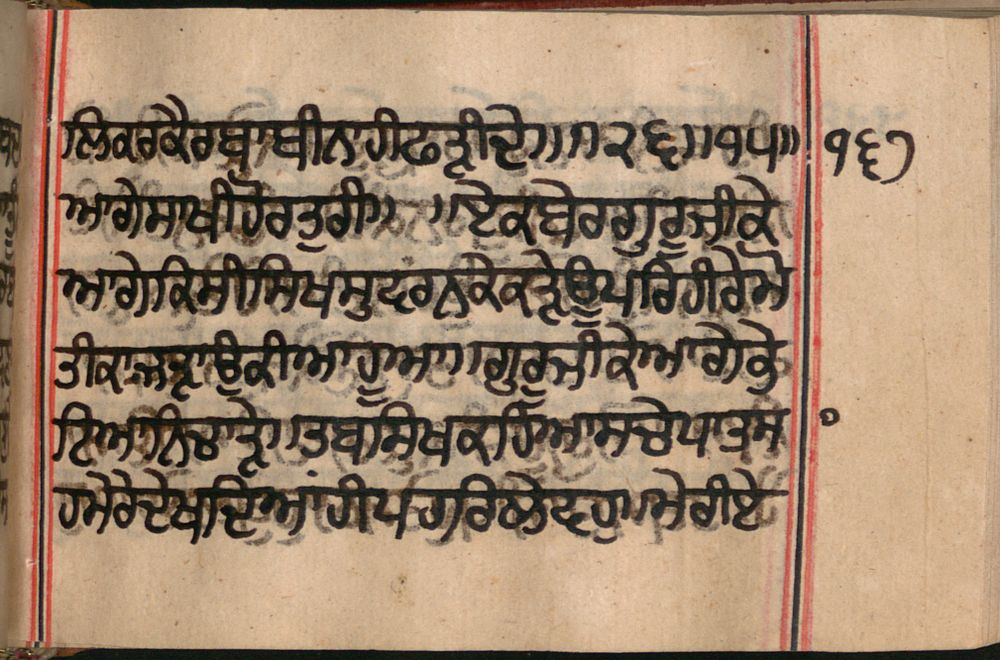 ਲਿਕਰਕੈਰਬਾਬੀਨਾਹੀਛਤ੍ਰੀਦੇ॥॥੧੨੬॥੧੫॥ ੧੬੭
ਆਗੇਸਾਖੀਹੋਰਤੁਰੀ॥ ॥ਏਕਬੇਰਗੁਰੂਜੀਕੇ
ਆਗੇਕਿਸੀਸਿਖਸੁਵਰਨਕੇਕੜੇਊਪਰਿਹੀਰੇਮੋ
ਤੀਕਾਜੜਾਊਕੀਆਹੂਆ॥ਗੁਰੂਜੀਕੇਆਗੈਕੇ
ਟਿਆਨਿਚਾੜੇ॥ਤਬਸਿਖਕਹਿਆਸਚੇਪਾਤਸ
ਹਮੇਰੇਦੇਖਦਿਆਂਹੀਪਗਰਿਲੇਵਹੁ॥ਮੇਰੀਏ